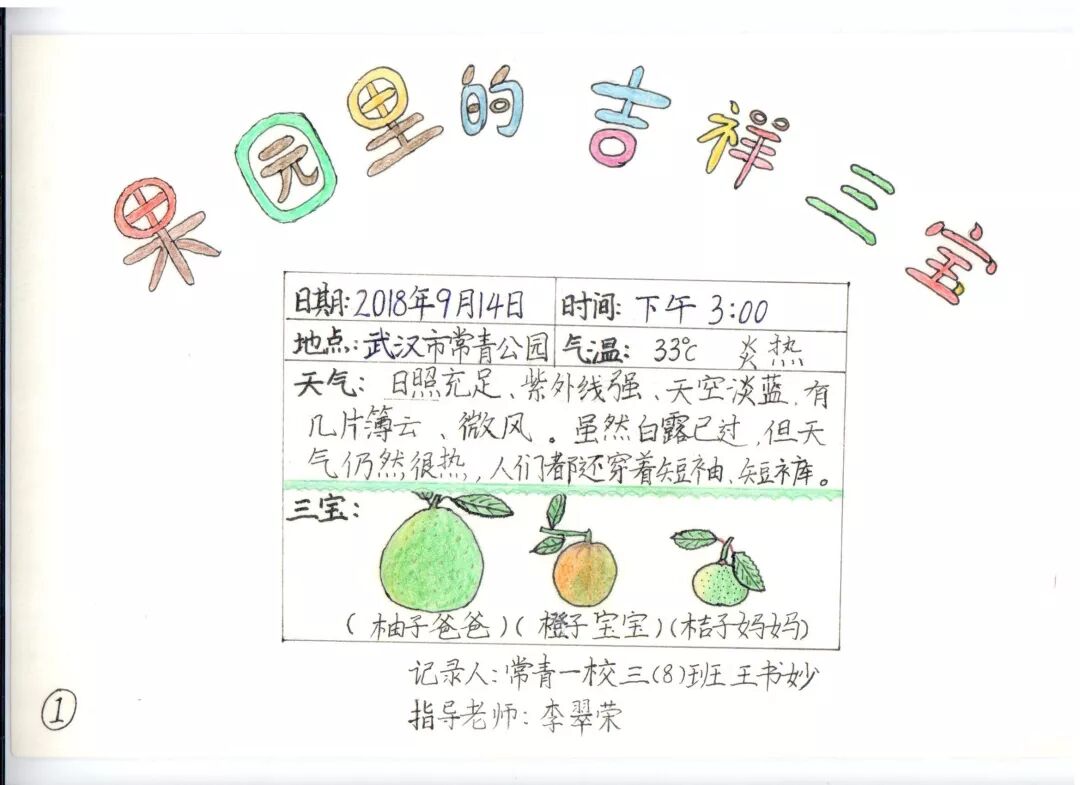 果园里的吉祥三宝
日期:2018年9月14日 时间:下午 3:00
地点:武汉市常青公园 气温:33℃ 炎热
天气:日照充足、紫外线强、天空淡蓝,有
几片簿云、微风。虽然白露已过,但天
气仍然很热,人们都还穿着短袖、短裤。
三宝:
(柚子爸爸)(橙子宝宝)(桔子妈妈)
记录人:常青一校三(8)班王书妙
指导老师:李翠荣
1